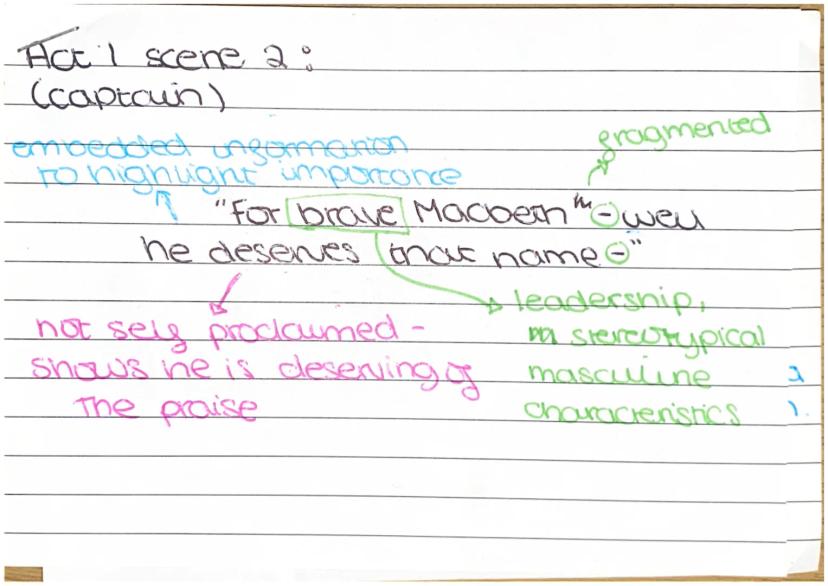 Act 1 scene 2:
(captain)
embedded information
to highlight importance
fragmented
"For brave Macbeth - well
he deserves that name -"
not self proclaimed -
shows he is deserving of
the praise
leadership,
stereotypical
masculine
characteristics
2
1.